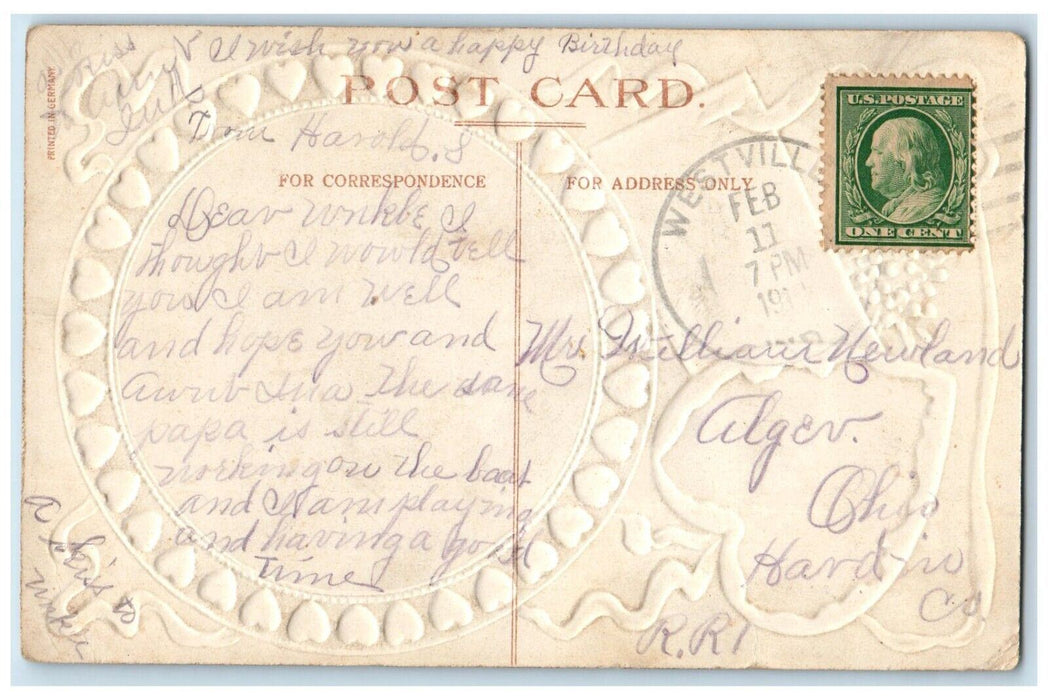 I wish you a happy Birthday
POST CARD.
PRINTED IN GERMANY
a kiss
from Harold. S
FOR CORRESPONDENCE
FOR ADDRESS ONLY.
U.S. POSTAGE
ONE CENT
WESTVILLE
FEB
11
7 PM
191
Dear unkle I
thought I would tell
you I am well
and hope you and
Aunt Ina the same
papa is still
working on the boat
and I am playing
and having a good
time
a kiss
unkle
Mr William Newland
Alger.
Ohio
Hardin
Co
R.R1